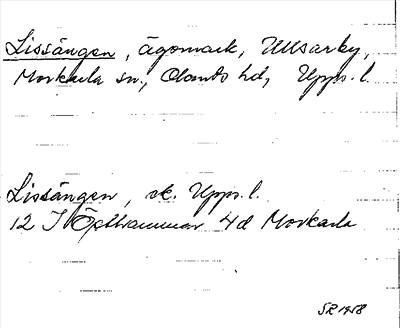 Lissängen, ägomark, Ullsarby,
Morkarla sn., Olands hd, Upps. l.
Lissängen, sk. Upps. l.
12 I Östhammar 4d Morkarla
SR 1958